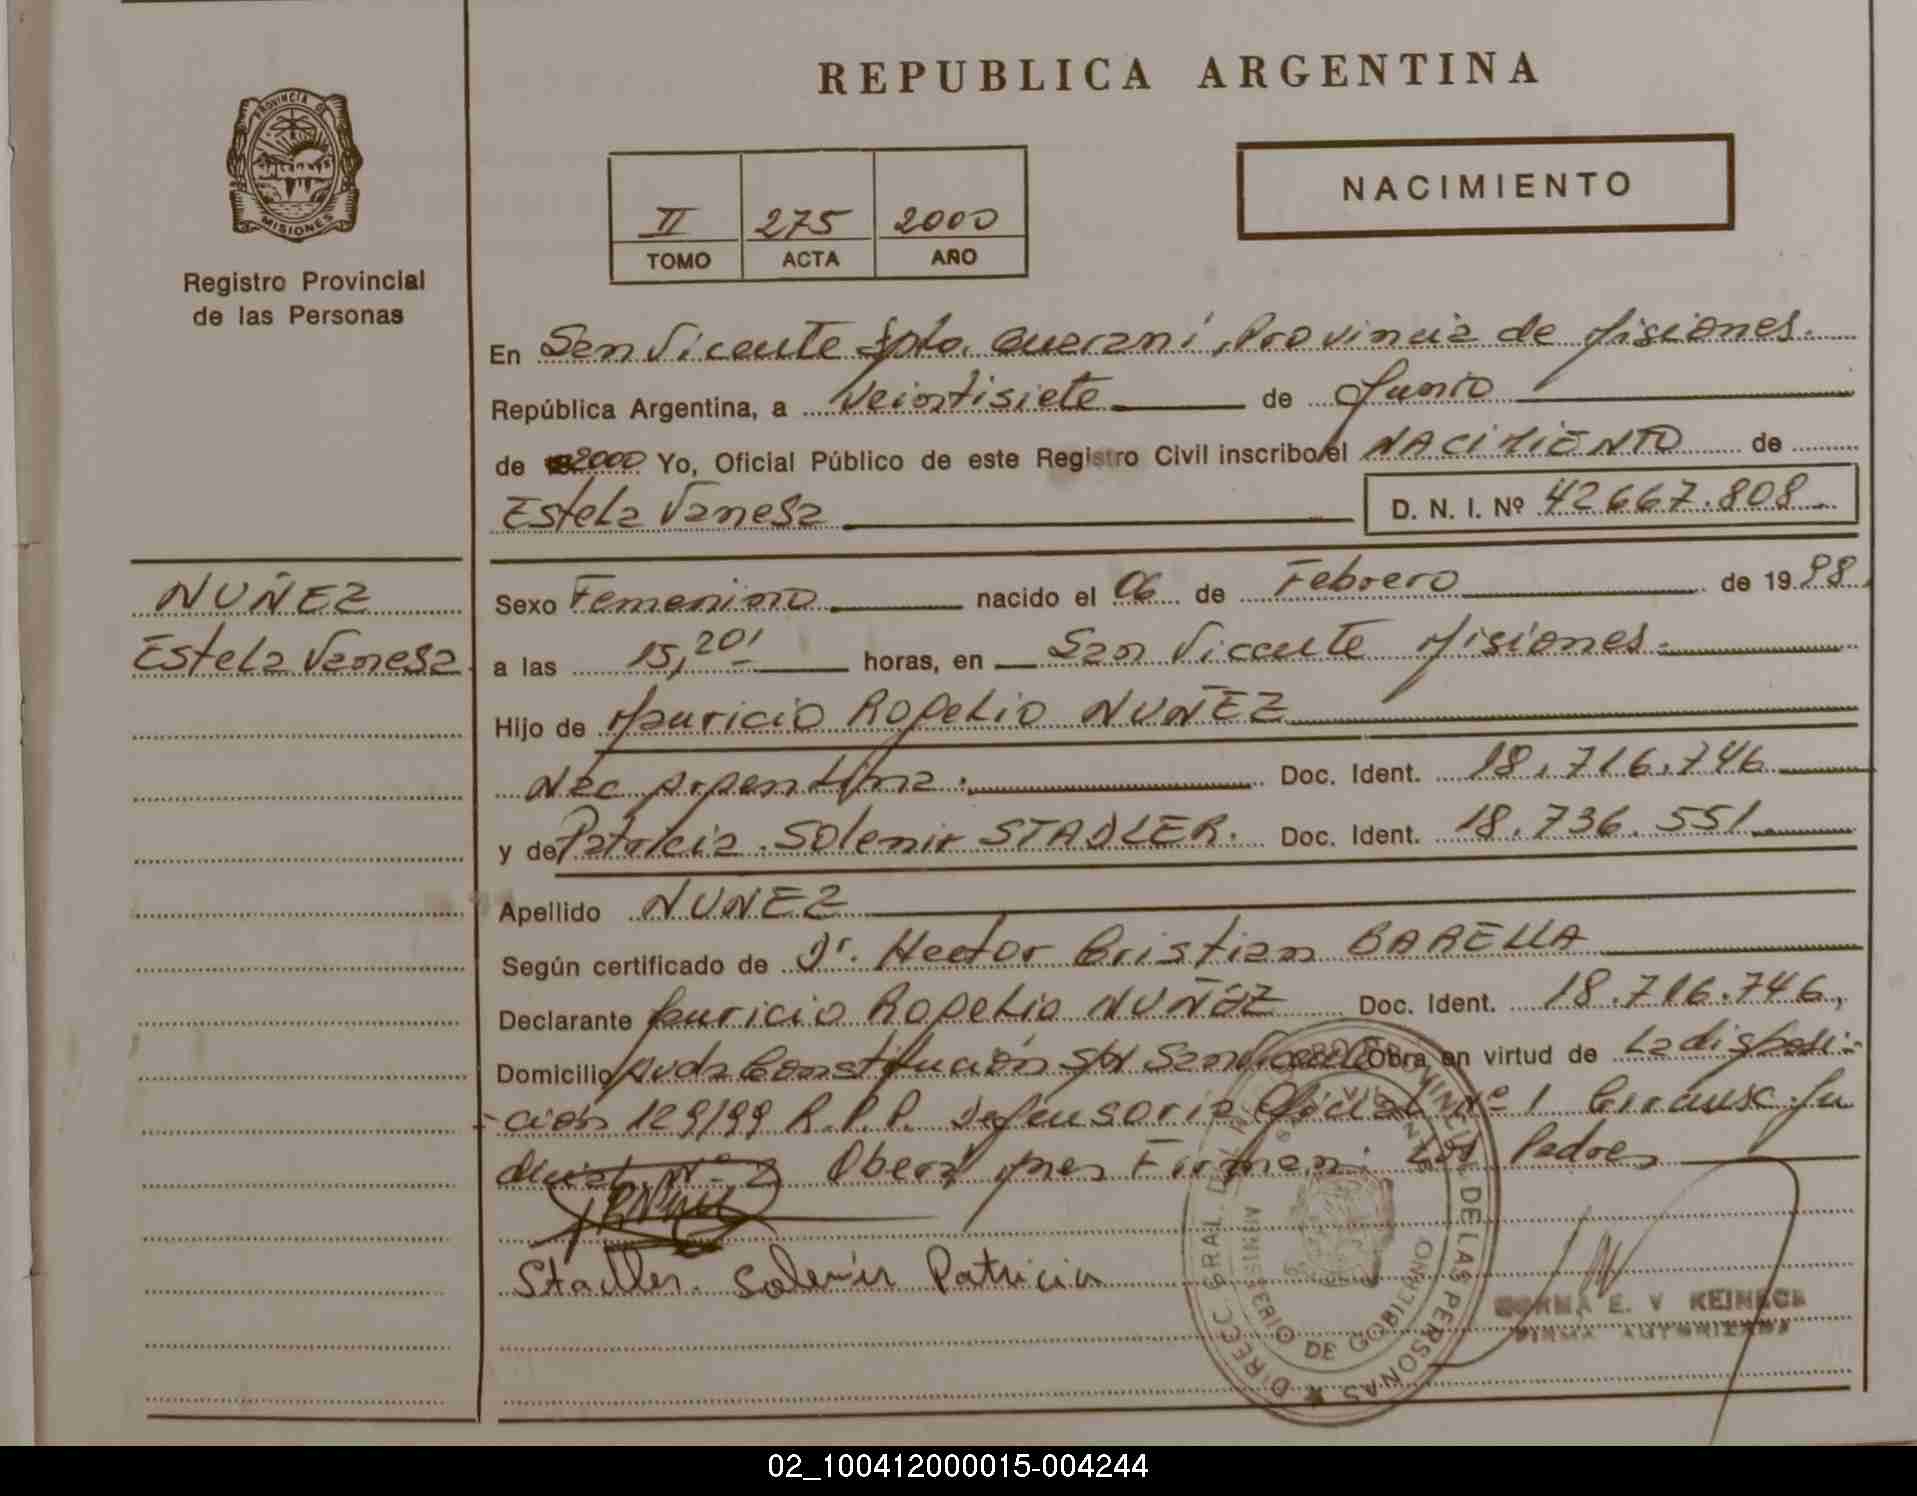 REPUBLICA ARGENTINA
PROVINCIA DE
MISIONES
Registro Provincial
de las Personas
II 275 2000
TOMO ACTA AÑO
NACIMIENTO
En San Vicente Dpto. Guaraní, Provincia de Misiones.
República Argentina, a Veintisiete de Junio
de 2000 Yo, Oficial Público de este Registro Civil inscribo el NACIMIENTO de
Estela Vanesa D. N. I. Nº 42667.808
NUÑEZ
Estela Vanesa
Sexo Femenino nacido el 06 de Febrero de 19 98
a las 15,20' horas, en San Vicente Misiones.
Hijo de Mauricio Rogelio NUÑEZ
Nac Argentina. Doc. Ident. 18.716.746
y de Patricia Solenir STADLER. Doc. Ident. 18.736.551
Apellido NUÑEZ
Según certificado de Dr. Hector Cristian BARELLA
Declarante Mauricio Rogelio NUÑEZ Doc. Ident. 18.716.746,
Domicilio Avda Constitución S/N San Vicente Obra en virtud de La disposi-
-ción 129/99 R.P.P. Defensoria Oficial Nº 1 Circunsc. Ju
dicial Nº 2 Oberá Mnes Firman: Los Padres
Stadler. Solenir Patricia
DIRECC. GRAL. DEL REG. PROVINCIAL DE LAS PERSONAS
SAN VICENTE
MINISTERIO DE GOBIERNO
NORMA E. V REINECK
FIRMA AUTORIZADA
02_100412000015-004244